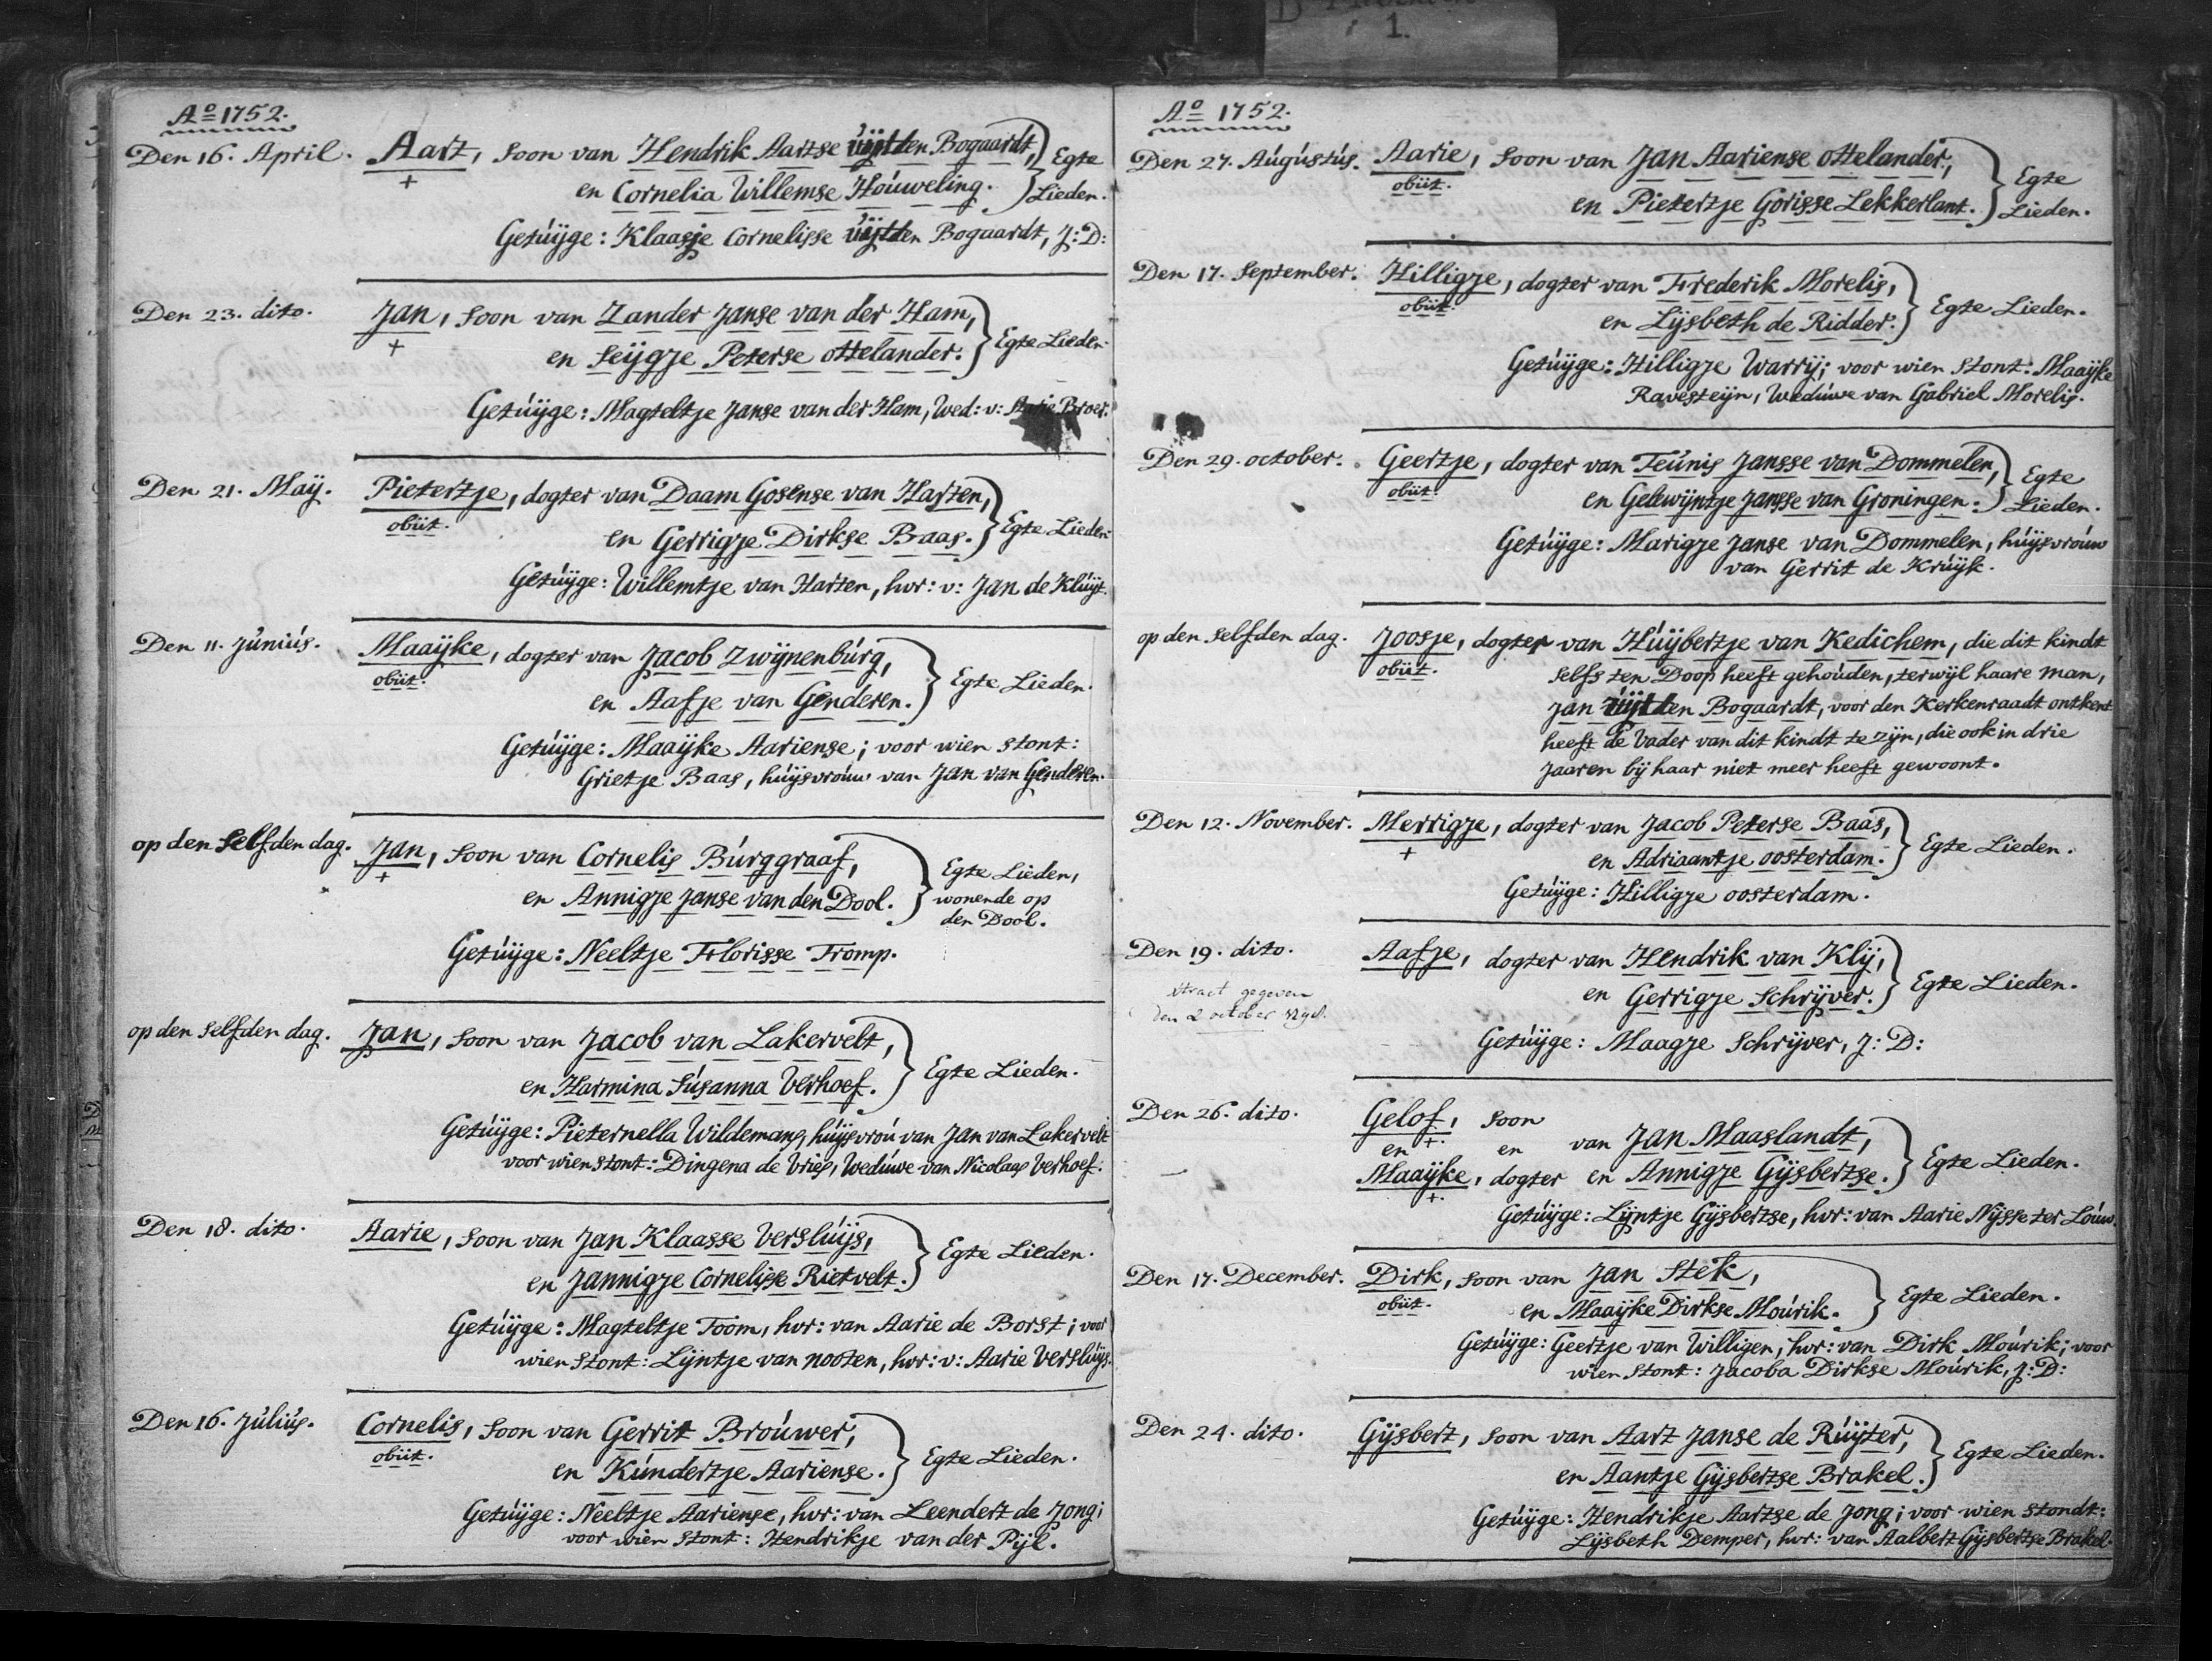 Aº 1752.
Den 16. April. Aart, soon van Hendrik Aartse uÿtten Bogaardt, Egte
+ en Cornelia Willemse Houweling. Lieden.
Getuÿge: Klaasje Cornelisse uÿtten Bogaardt, J:D:
Den 23. dito. Jan, soon van Zander Janse van der Ham,
+ en Seÿgje Peterse ottelander. Egte Lieden.
Getuÿge: Magteltje Janse van der Ham, Wed: v: Aarie Broer.
Den 21. Maÿ. Pietertje, dogter van Daam Gosense van Harten,
obiit. en Gerrigje Dirkse Baas. Egte Lieden.
Getuÿge: Willemtje van Harten, hvr: v: Jan de Kluÿt.
Den 11. Junius. Maaÿke, dogter van Jacob Zwÿnenburg,
obiit. en Aafje van Genderen. Egte Lieden.
Getuÿge: Maaÿke Aariense; voor wien stont:
Grietje Baas, huÿsvrouw van Jan van Genderen.
op den selfden dag. Jan, soon van Cornelis Burggraaf, Egte Lieden,
+ en Annigje Janse van den Dool. wonende op
den Dool.
Getuÿge: Neeltje Florisse Tromp.
op den selfden dag. Jan, soon van Jacob van Lakervelt,
en Harmina Susanna Verhoef. Egte Lieden.
Getuÿge: Pieternella Wildemans, huÿsvrou van Jan van Lakervelt
voor wien stont: Dingena de Vries, Weduwe van Nicolaas Verhoef.
Den 18. dito. Aarie, soon van Jan Klaasse Versluÿs,
en Jannigje Cornelisse Rietvelt. Egte Lieden.
Getuÿge: Magteltje Toom, hvr: van Aarie de Borst; voor
wien stont: Lÿntje van nooten, hvr: v: Aarie Versluÿs.
Den 16. Julius. Cornelis, soon van Gerrit Brouwer,
obiit. en Kundertje Aariense. Egte Lieden.
Getuÿge: Neeltje Aariense, hvr: van Leendert de Jong;
voor wien stont: Hendrikje van der Pÿl.
1.
Aº 1752.
Den 27. Augustus. Aarie, soon van Jan Aariense ottelander, Egte
obiit. en Pietertje Gorisse Lekkerlant. Lieden.
Den 17. September. Hilligje, dogter van Frederik Morelis,
obiit. en Lÿsbeth de Ridder. Egte Lieden.
Getuÿge: Hilligje Warrÿ; voor wien stont: Maaÿke
Ravesteÿn, Weduwe van Gabriel Morelis.
Den 29. october. Geertje, dogter van Teunis Jansse van Dommelen, Egte
obiit. en Gelewÿntje Jansse van Groningen. Lieden.
Getuÿge: Marigje Janse van Dommelen, huÿsvrouw
van Gerrit de Kruÿk.
op den selfden dag. Joosje, dogter van Huÿbertje van Kedichem, die dit kindt
obiit. selfs ten Doop heeft gehouden, terwÿl haare man,
Jan uÿtten Bogaardt, voor den Kerkenraadt ontkent
heeft de Vader van dit kindt te zÿn, die ook in drie
Jaaren bÿ haar niet meer heeft gewoont.
Den 12. November. Merrigje, dogter van Jacob Peterse Baas,
+ en Adriaantje oosterdam. Egte Lieden.
Getuÿge: Hilligje oosterdam.
Den 19. dito. Aafje, dogter van Hendrik van Klÿ,
xtract gegeven en Gerrigje Schrÿver. Egte Lieden.
den 2 october
Getuÿge: Maagje Schrÿver, J:D:
Den 26. dito. Gelof, soon
en +. en van Jan Maaslandt,
Maaÿke, dogter en Annigje Gÿsbertse. Egte Lieden.
+.
Getuÿge: Lÿntje Gÿsbertse, hvr: van Aarie Nÿsse ter Louw.
Den 17. December. Dirk, soon van Jan Stek,
obiit. en Maaÿke Dirkse Mourik. Egte Lieden.
Getuÿge: Geertje van Willigen, hvr: van Dirk Mourik; voor
wien stont: Jacoba Dirkse Mourik, J:D:
Den 24. dito. Gÿsbert, soon van Aart Janse de Ruÿter,
en Aantje Gÿsbertse Brakel. Egte Lieden.
Getuÿge: Hendrikje Aartse de Jong; voor wien stondt:
Lÿsbeth Demper, hvr: van Aalbert Gÿsbertse Brakel.